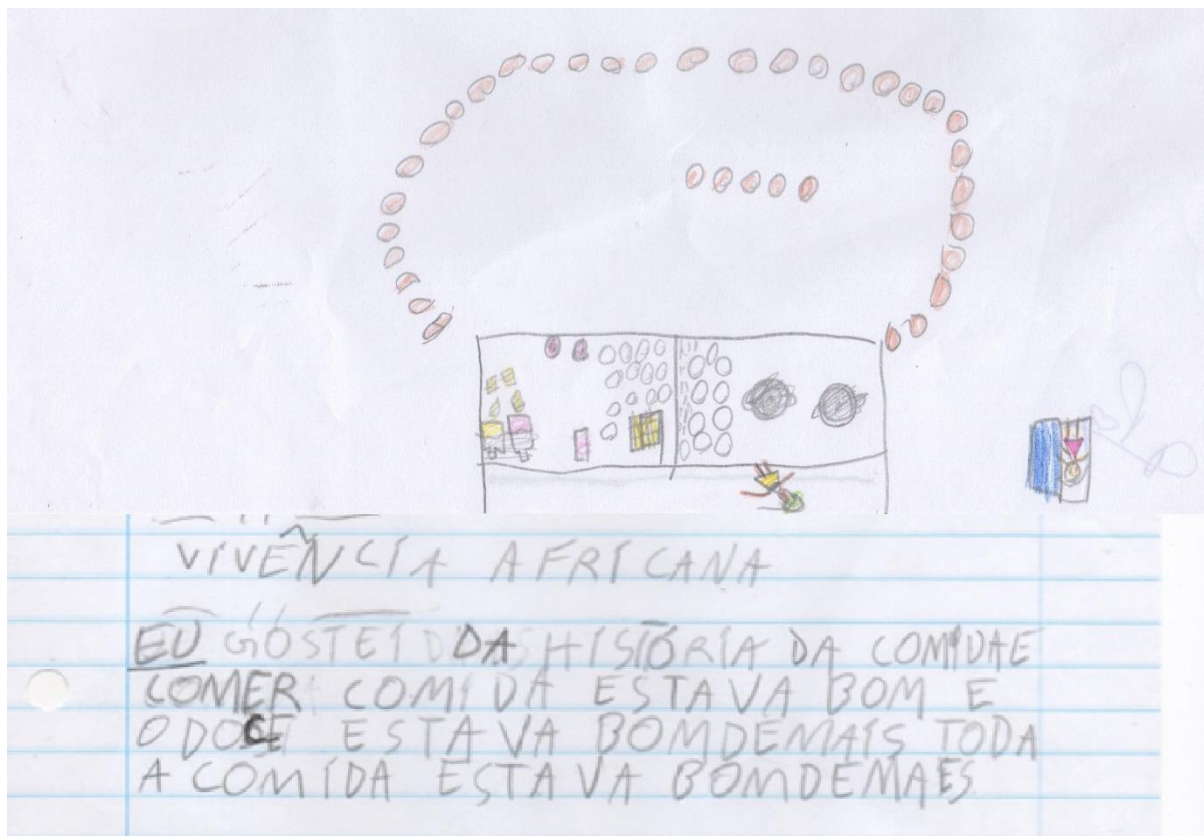 VIVÊNCIA AFRICANA
EU GOSTEI DA HISTÓRIA DA COMIDA E
COMER COMIDA ESTAVA BOM E
O DOCE ESTAVA BOMDEMAIS TODA
A COMIDA ESTAVA BOMDEMAES